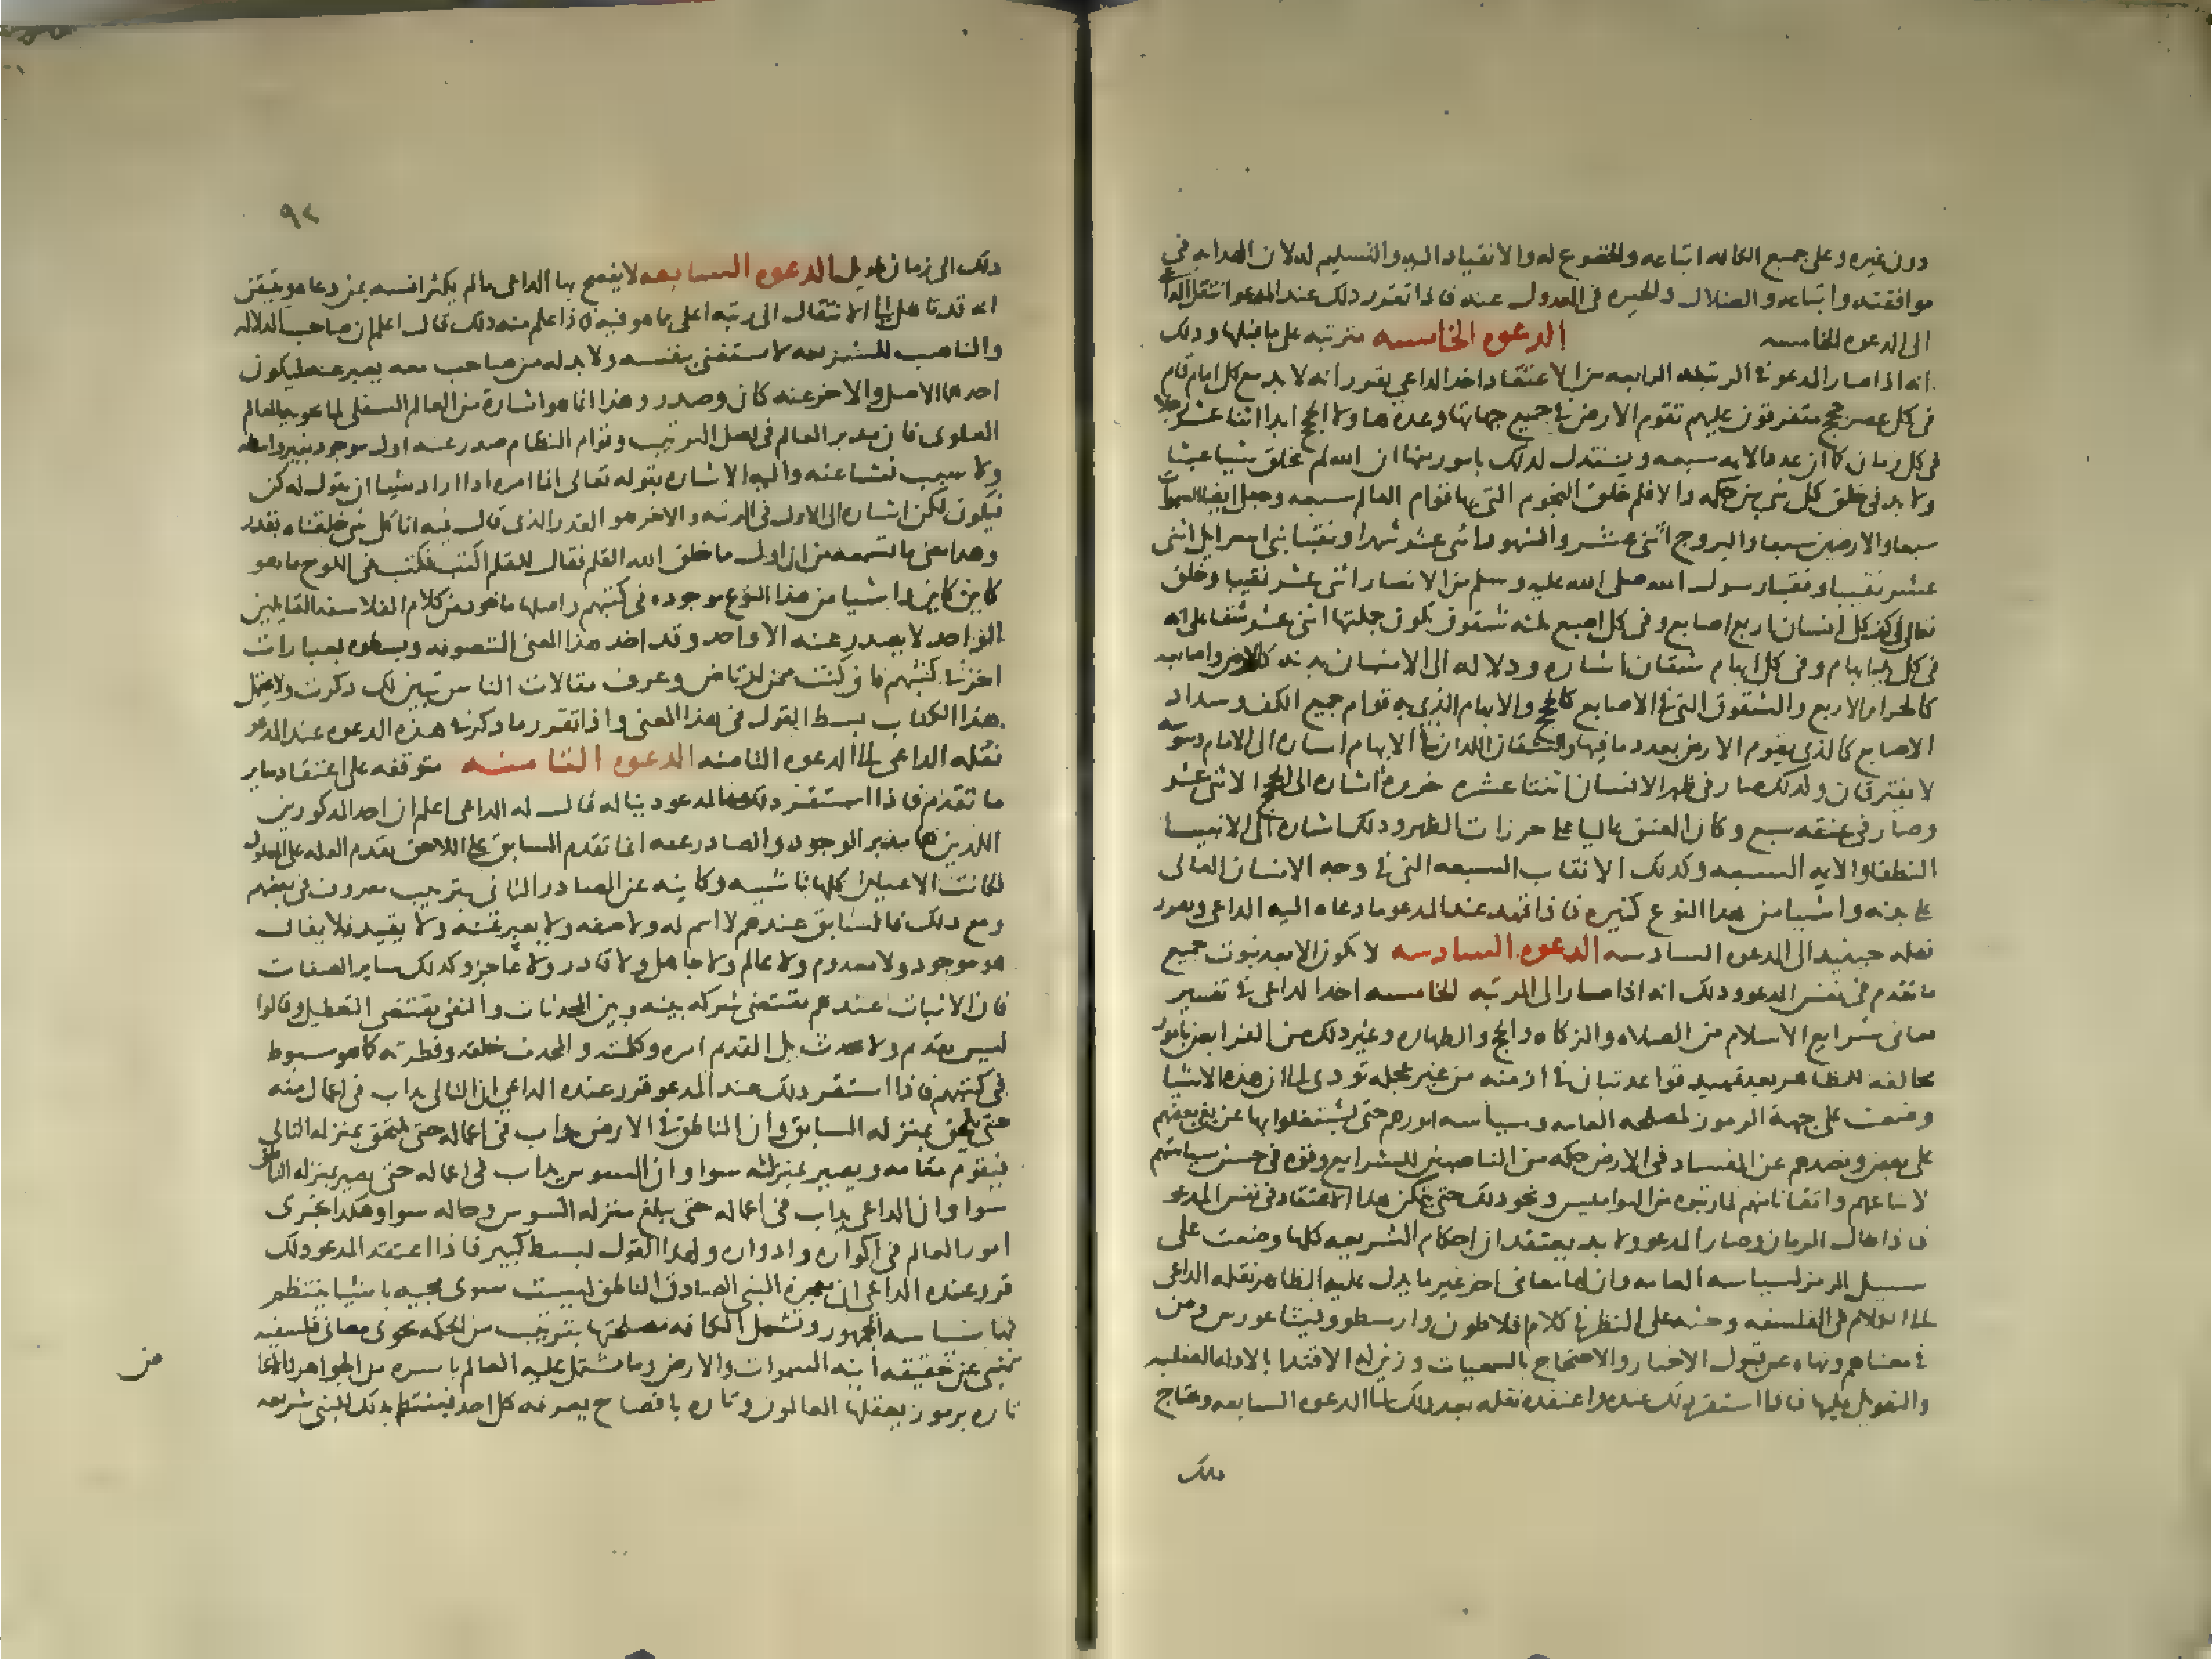 دون غيره وعلى جميع الكافه اتباعه والخضوع له والانقياد اليه والتسليم له لان الهدايه في
موافقته واتباعه والضلال والحيره في العدول عنه فاذا تقرر ذلك عند المدعو انتقل الداعي
الى الدعوه الخامسه الدعوه الخامسه مترتبه على ما قبلها وذلك
انه اذا صار المدعو في الرتبه الرابعه من الاعتقاد اخذ الداعي يقرر انه لا بد مع كل امام قايم
في كل عصر حجج متفرقون عليهم تقوم الارض في جميع جهاتها وعدة هاولا الحجج ابدا اثنا عشر رجلا
في كل زمان كما ان عدد الايمه سبعه ويستدل لذلك بامور منها ان الله لم يخلق شيا عبثا
ولا بد في خلق كل شي من حكمه والا فلم خلق النجوم التي بها قوام العالم سبعه وجعل ايضا السموات
سبعا والارضين سبعا والبروج اثنى عشر والشهور اثنى عشر شهرا ونقبا بني اسرايل اثنى
عشر نقيبا ونقبا رسول الله صلى الله عليه وسلم من الانصار اثنى عشر نقيبا وخلق
تعالى في كف كل انسان اربع اصابع وفي كل اصبع ثلثه شقوق تكون جملتها اثنى عشر شقا على انه
في كل يد ابهام وفي كل ابهام شقان اشاره ودلاله الى الانسان بدنه كالارض واصابعه
كالجزاير الاربع والشقوق التي في الاصابع كالحجج والابهام الذي به قوام جميع الكف وسداد
الاصابع كالذي يقوم الارض بعدد ما فيها والشقان اللذان في الابهام اشاره الى الامام وسوسه
لا يفترقان ولذلك صار في ظهر الانسان اثنتا عشره خرزه اشاره الى الحجج الاثنى عشر
وصار في عنقه سبع وكان العنق عاليا على خرزات الظهر وذلك اشاره الى الانبيا
النطقا والايمه السبعه وكذلك الاثقاب السبعه التي في وجه الانسان العالى
على بدنه واشيا من هذا النوع كثيره فاذا تمهد عند المدعو ما دعاه اليه الداعي وتقرر
نقله حينيذ الى الدعوه السادسه الدعوه السادسه لا تكون الا بعد ثبوت جميع
ما تقدم في نفس المدعو وذلك انه اذا صار الى الرتبه الخامسه اخذ الداعي في تفسير
معاني شرايع الاسلام من الصلاه والزكاه والحج والطهاره وغير ذلك من الفرايض بامور
مخالفه للظاهر بعد تمهيد قواعد تبان في ازمنه من غير عجله تودى الى ان هذه الاشيا
وضعت على جهة الرموز لمصلحه العامه وسياسه امورهم حتى يشتغلوا بها عن بغي بعضهم
على بعض وتصدهم عن الفساد في الارض حكمه من الناصبين للشرايع وقوه في حسن سياستهم
لاتباعهم واتقانا منهم لما رتبوه من النواميس ونحو ذلك حتى يتمكن هذا الاعتقاد في نفس المدعو
فاذا طال الزمان وصار المدعو ولا بد يعتقد ان احكام الشريعه كلها وضعت على
سبيل الرمز لسياسه العامه وان لها معاني اخر غير ما يدل عليه الظاهر نقله الداعي
الى الكلام في الفلسفه وحثه على النظر في كلام افلاطون وارسطو وفيثاغورس ومن
في معناهم ونهاه عن قبول الاخبار والاحتجاج بالسمعيات وزين له الاقتدا بالادله العقليه
والتعويل عليها فاذا استقر ذلك عنده واعتقده نقله بعد ذلك الى الدعوه السابعه ويحتاج
ذلك
٩٢
ذلك الى زمان طويل الدعوه السابعه لا يفصح بها الداعي ما لم يكثر انسه بمن دعاه ويتيقن
انه قد تاهل الى الانتقال الى رتبه اعلى مما هو فيه فاذا علم منه ذلك قال اعلم ان صاحب الدلاله
والناصب للشريعه لا يستغني بنفسه ولا بد له من صاحب معه يعبر عنه ليكون
احدهما الاصل والاخر عنه كان وصدر وهذا انما هو اشارة من العالم السفلي لما يحويه العالم
العلوى فان مدبر العالم في اصل الترتيب وقوام النظام صدر عنه اول موجود بغير واسطه
ولا سبب نشا عنه واليه الاشاره بقوله تعالى انما امره اذا اراد شيا ان يقول له كن
فيكون لكن اشاره الى الاول في الرتبه والاخر هو القدر الذى قال فيه انا كل شي خلقناه بقدر
وهذا معنى ما نسمعه من ان اول ما خلق الله القلم فقال للقلم اكتب فكتب في اللوح ما هو
كاين كاين واشيا من هذا النوع موجوده في كتبهم واصلها ماخوذ من كلام الفلاسفه القايلين
الواحد لا يصدر عنه الا واحد وقد اخذ هذا المعنى المتصوفه وبسطوه بعبارات
اخر في كتبهم فان كنت ممن ارتاض وعرف مقالات الناس تبين لك ما ذكرت ولا يحتمل
هذا الكتاب بسط القول في هذا المعنى واذا تقرر ما ذكر في هذه الدعوه عند المدعو
نقله الداعي الى الدعوه الثامنه الدعوه الثامنه متوقفه على اعتقاد ساير
ما تقدم فاذا استقر ذلك عند المدعو دينا له قال له الداعي اعلم ان احد المذكورين
اللذين هما مدبر الوجود والصادر عنه انما تقدم السابق على اللاحق تقدم العله على المعلول
فكانت الاعيان كلها ناشيه وكاينه عن الصادر الثاني بترتيب معروف في بعضهم
ومع ذلك فالسابق عندهم لا اسم له ولا صفه ولا يعبر عنه ولا يقيد فلا يقال
هو موجود ولا معدوم ولا عالم ولا جاهل ولا قادر ولا عاجز وكذلك ساير الصفات
فان الاثبات عندهم يقتضي شركه بينه وبين المحدثات والنفي يقتضي التعطيل وقالوا
ليس بقديم ولا محدث بل القديم امره وكلمته والمحدث خلقه وفطرته كما هو مبسوط
في كتبهم فاذا استقر ذلك عند المدعو قرر عنده الداعي ان التالى يداب في اعمال منه
حتى يلحق بمنزله السابق وان الناطق في الارض يداب في اعماله حتى يلحق بمنزله التالى
فيقوم مقامه ويصير بمنزلته سوا وان السوس يداب في اعماله حتى يصير بمنزله الناطق
سوا وان الداعي يداب في اعماله حتى يبلغ منزله السوس وحاله سوا وهكذا تجرى
امور العالم في اكواره وادواره ولهذا القول بسط كبير فاذا اعتقد المدعو ذلك
قرر عنده الداعي ان معجزة النبي الصادق الناطق ليست سوى مجيه باشيا ينتظم
بها سياسه الجمهور وتشمل الكافه مصلحتها بترتيب من الحكمه تحوى معاني فلسفيه
تنبي عن حقيقه انيه السموات والارض وما يشتمل عليه العالم باسره من الجواهر والاعراض
تاره برموز يعقلها العالمون وتاره بافصاح يعرفه كل احد فينتظم بذلك للنبي شريعه
من